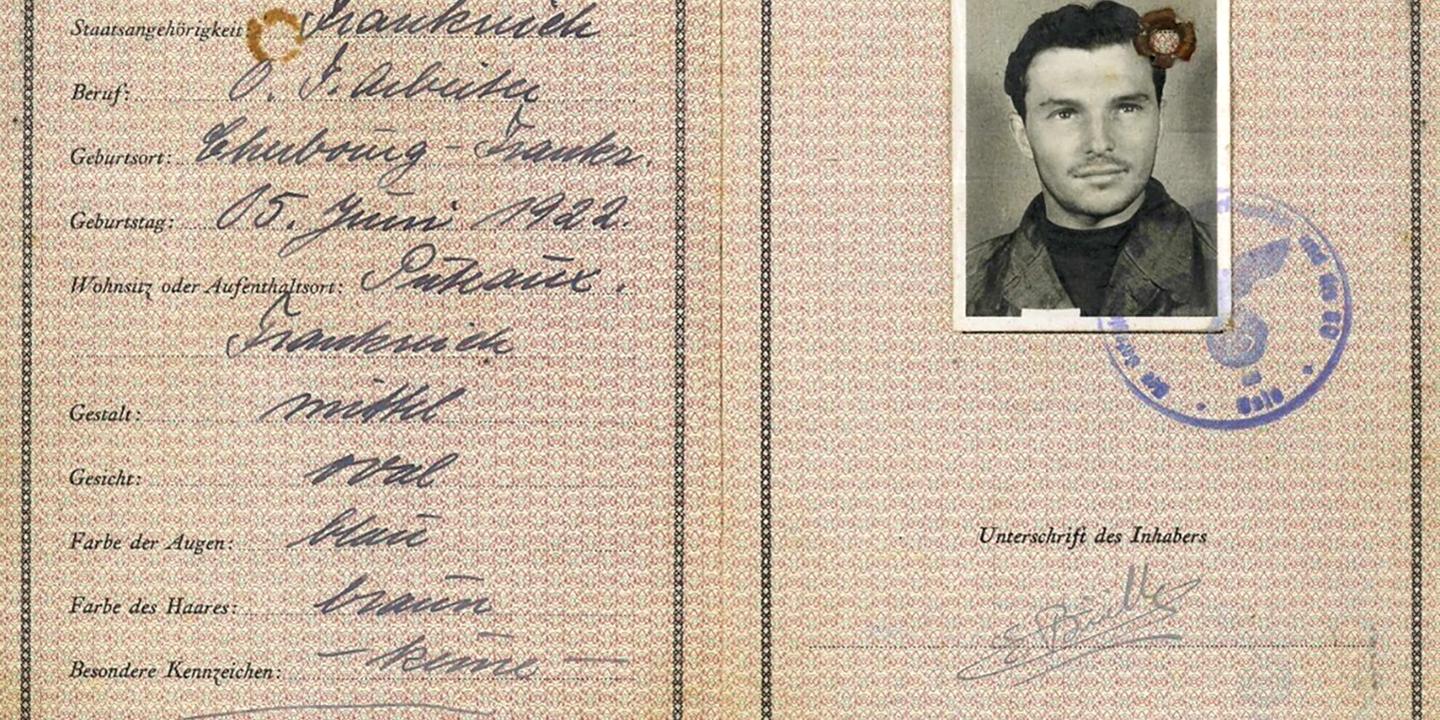 Staatsangehörigkeit: Frankreich
Beruf: O. T. Arbeiter
Geburtsort: Cherbourg - Frankr.
Geburtstag: 05. Juni 1922.
Wohnsitz oder Aufenthaltsort: Puteaux.
Frankreich
Gestalt: mittel
Gesicht: oval
Farbe der Augen: blau
Farbe des Haares: braun
Besondere Kennzeichen: — keine —
Unterschrift des Inhabers